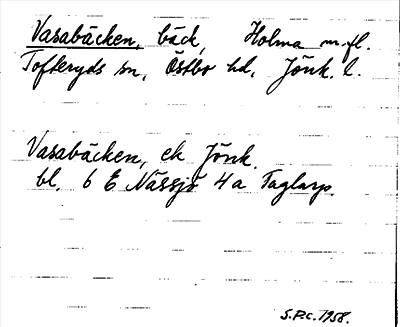 Vasabäcken, bäck, Holma m.fl.
Tofteryds sn, Östbo hd, Jönk. l.
Vasabäcken, ek Jönk.
bl. 6 E Nässjö 4a Taglarp.
S.P.C. 1958.